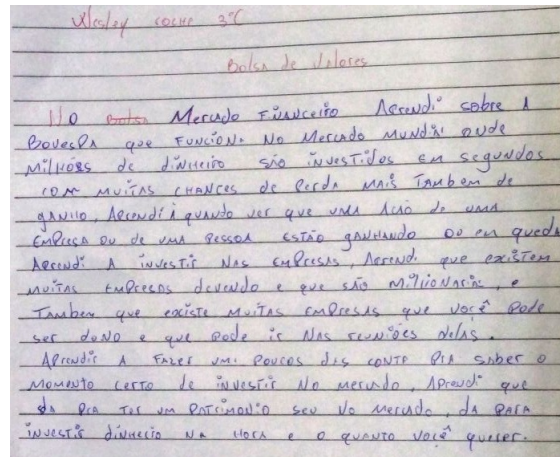 Wesley Roche 3°C
Bolsa de Valores
No Bolsa Mercado Financeiro Aprendi sobre A
Bovespa que Funciona No Mercado Mundial onde
Milhões de dinheiro são investidos em segundos
com muitas chances de Perda mais Tambem de
ganho, Aprendi A quando ver que uma Acão de uma
empresa ou de uma pessoa estão ganhando ou em queda
Aprendi A investir Nas empresas, Aprendi que existem
muitas empresas devendo e que são milionarias, e
Tambem que existe muitas empresas que você Pode
ser dono e que Pode ir Nas reuniões delas.
Aprendir A Fazer um Poucos das conta Pra saber o
momento certo de investir No mercado, Aprendi que
da Pra Ter um Patrimonio seu No mercado, da Para
investir dinheiro Na Hora e o quanto você querer.